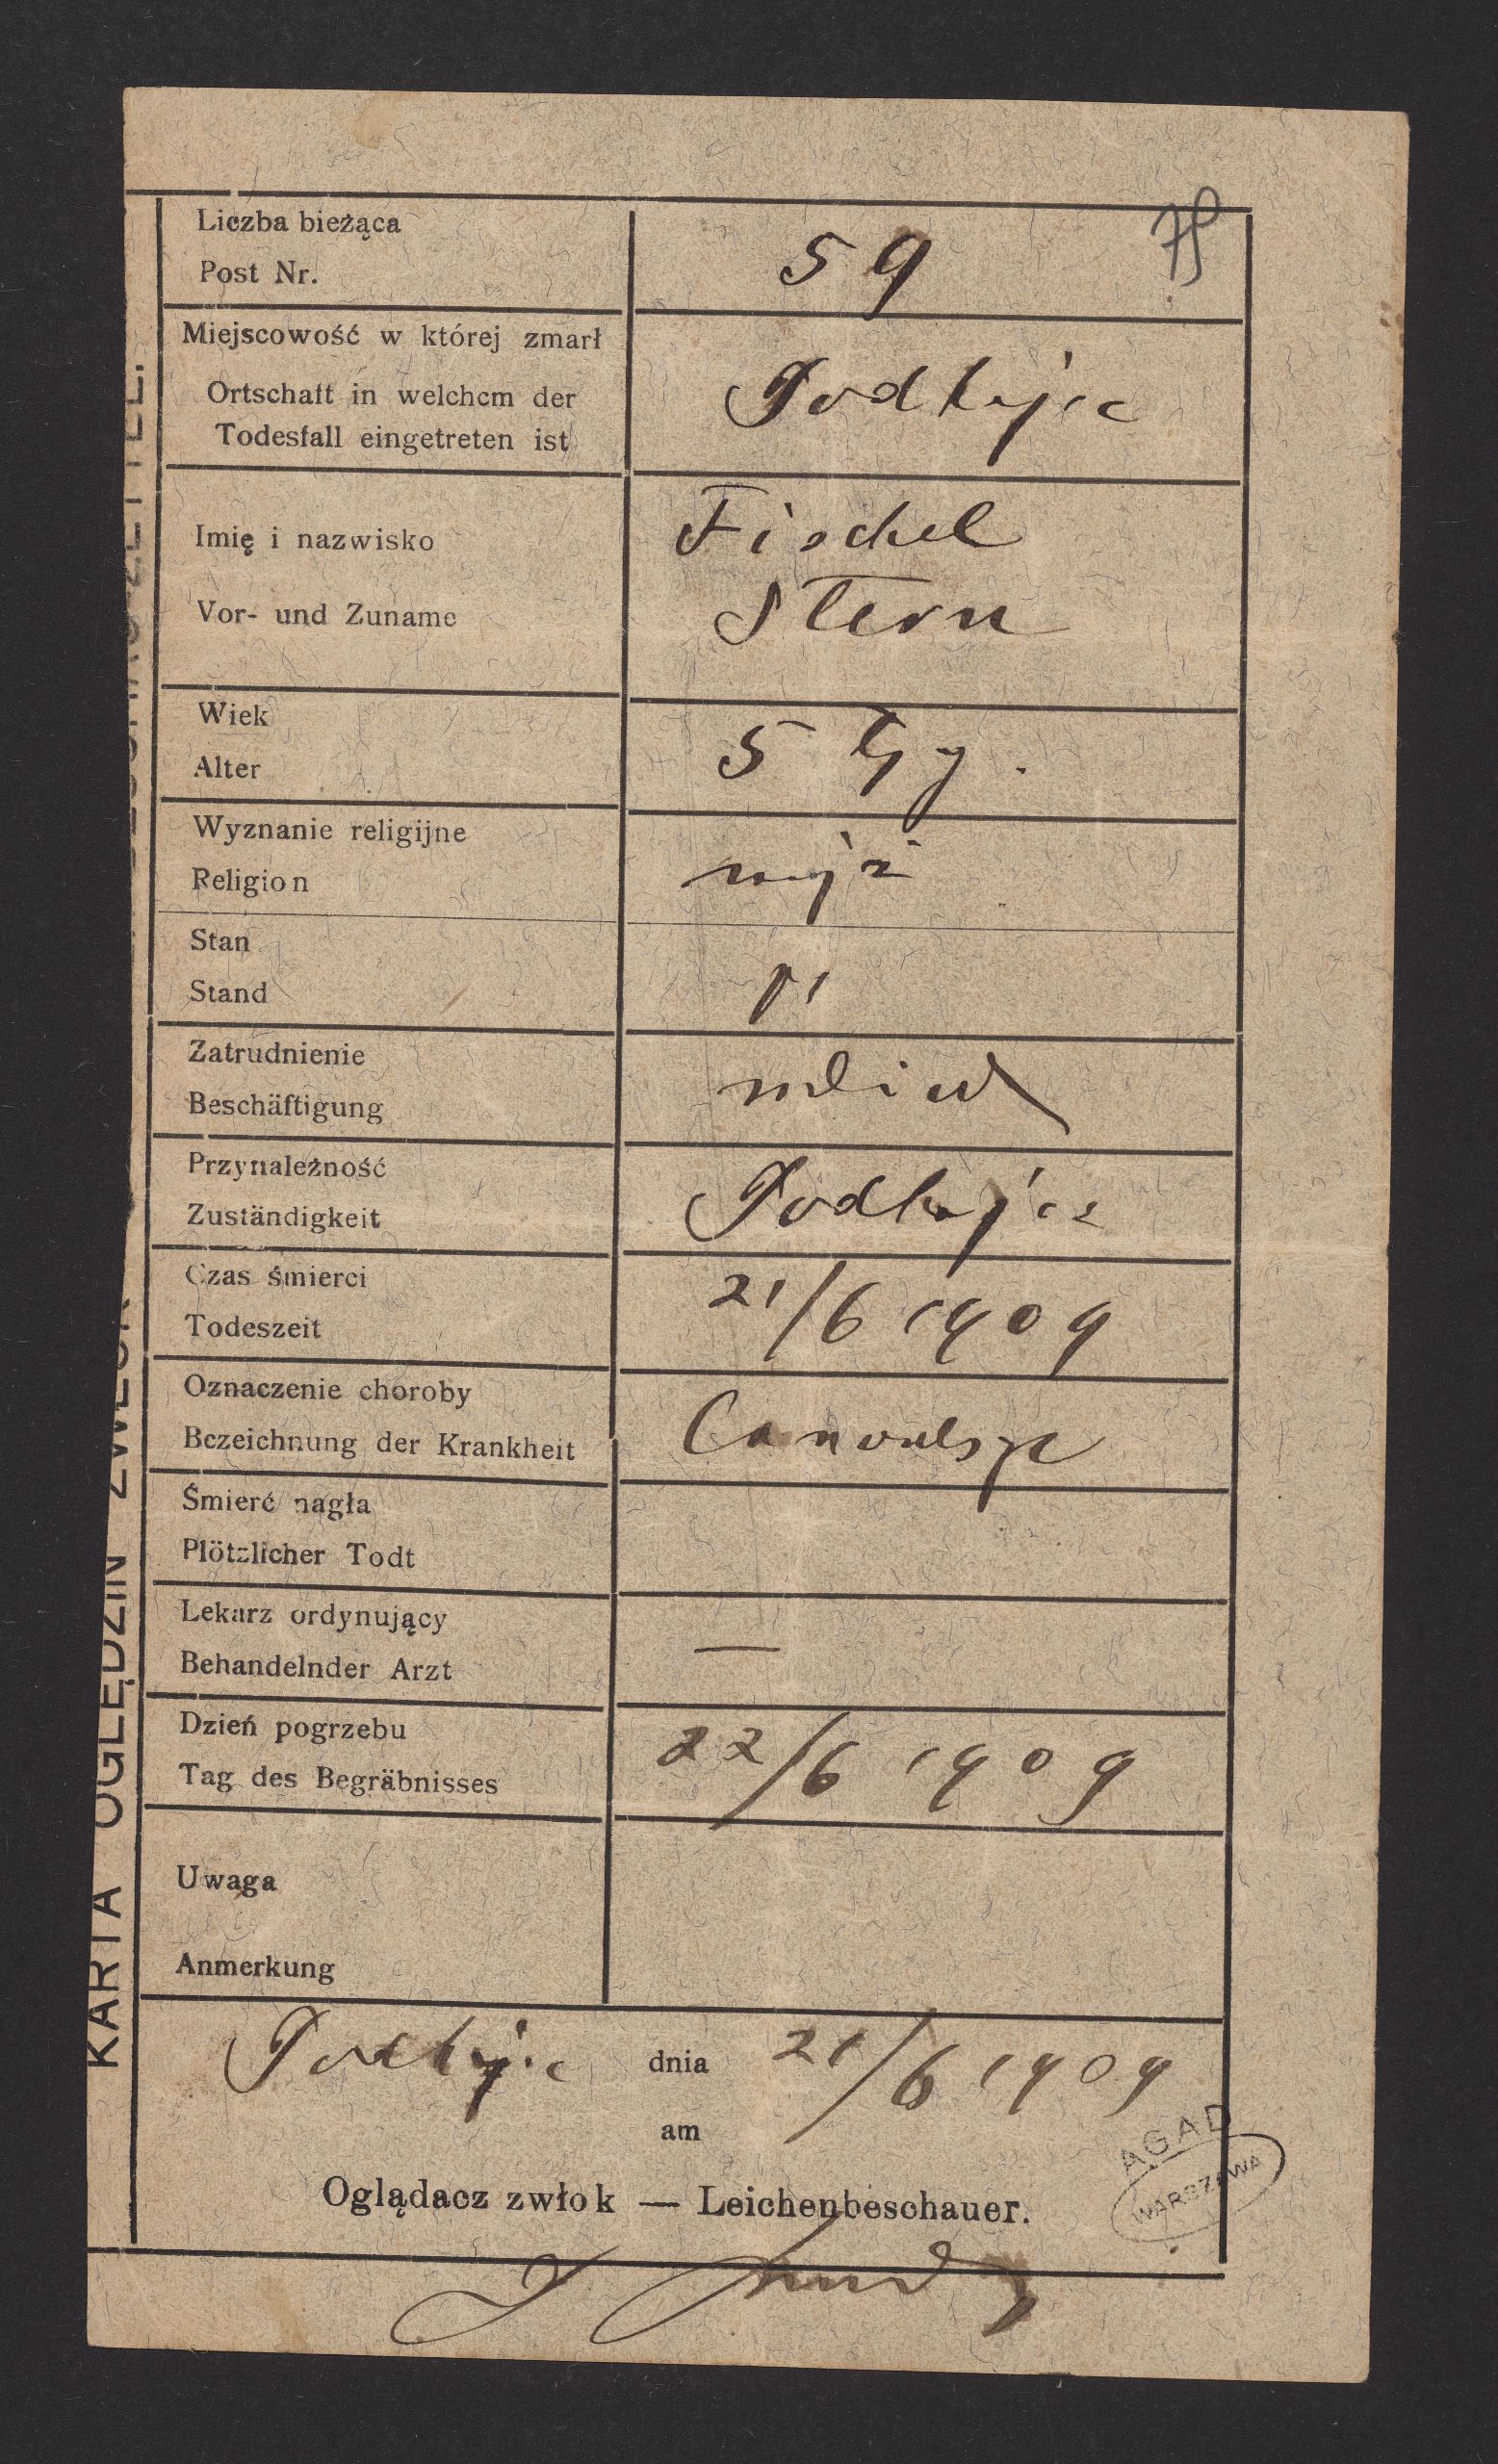 Liczba bieżąca
Post Nr.
59
Miejscowość w której zmarł
Ortschaft in welchem der
Todesfall eingetreten ist
Podhajce
Imię i nazwisko
Vor- und Zuname
Fischel
Stern
Wiek
Alter
5
Wyznanie religijne
Religion
mojż
Stan
Stand
Zatrudnienie
Beschäftigung
Przynależność
Zuständigkeit
Podhajce
Czas śmierci
Todeszeit
21/6 1909
Oznaczenie choroby
Bezeichnung der Krankheit
Convulsje
Śmierć nagła
Plötzlicher Todt
Lekarz ordynujący
Behandelnder Arzt
—
Dzień pogrzebu
Tag des Begräbnisses
22/6 1909
Uwaga
Anmerkung
Podhajce dnia 21/6 1909
am
Oglądacz zwłok — Leichenbeschauer.
AGAD
WARSZAWA
KARTA OGLĘDZIN ZWŁOK